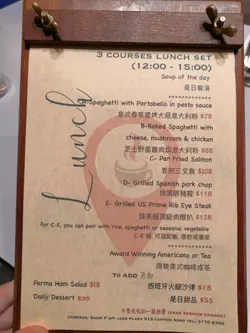 3 COURSES LUNCH SET
(12:00 - 15:00)
Soup of the day
是日餐湯
Lunch
Spaghetti with Portobello in pesto sauce
意式香草龍烤大菇意大利粉 $78
B-Baked Spaghetti with
cheese, mushroom & chicken
芝士野菌雞肉焗意大利粉 $88
C- Pan Fried Salmon
香煎三文魚 $108
D- Grilled Spanish pork chop
$118
E- Grilled US Prime Rib Eye Steak
$138
For C-E, you can pair with rice, spaghetti or seasonal vegetable
Award Winning Americano or Tea
得獎美式咖啡或茶
TO ADD 另加
Parma Ham Salad $18 西班牙火腿沙律 $18
Daily Dessert $35 是日甜品 $35